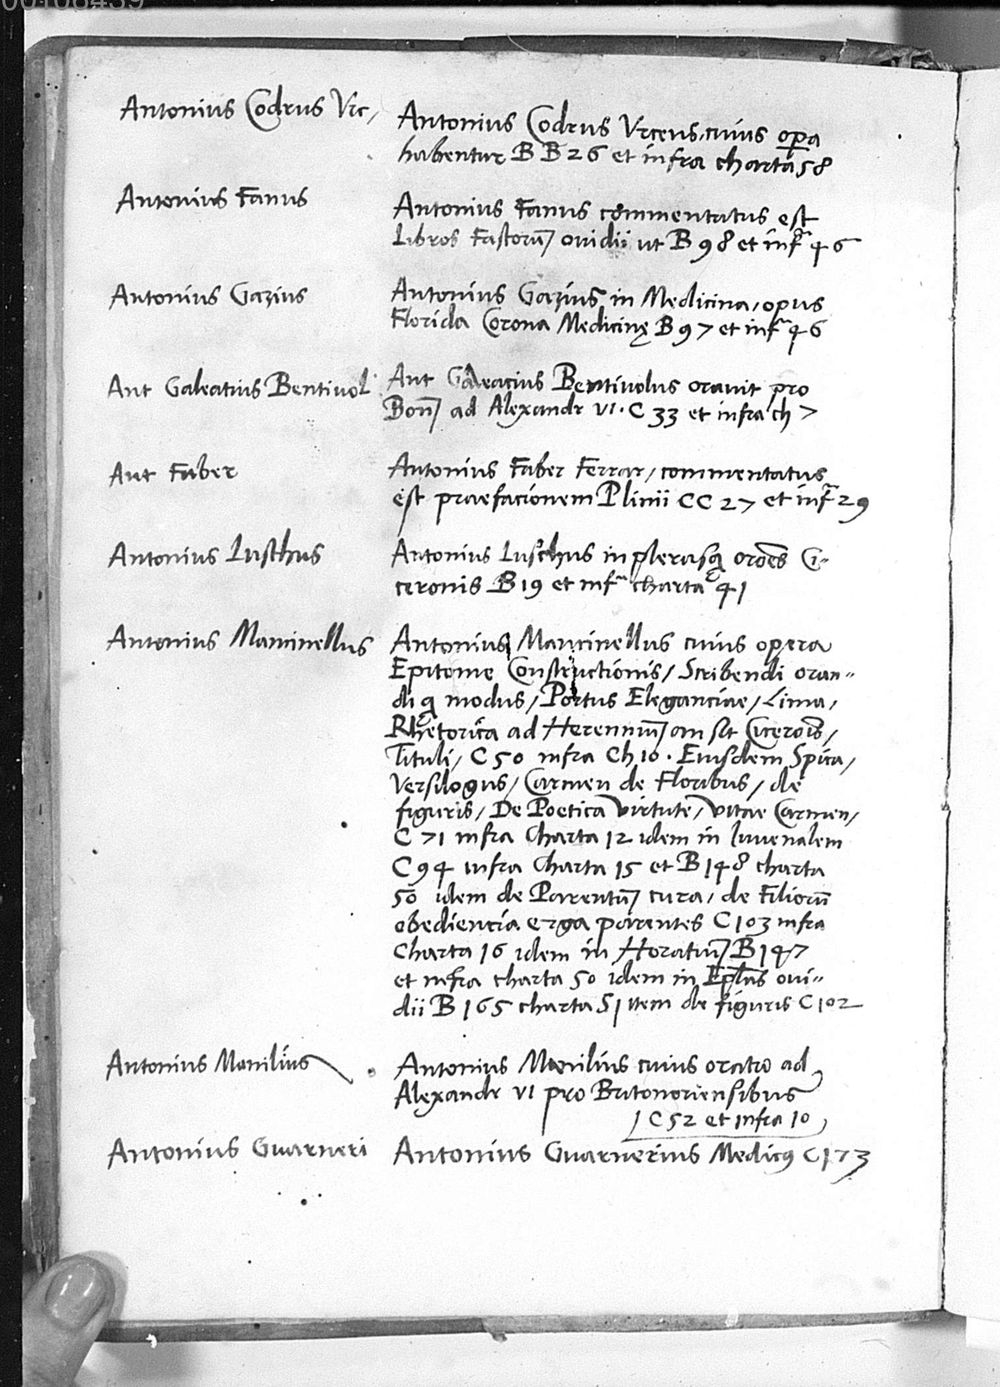 Antonius Codrus Vrc/
Antonius Codrus Vrceus, cuius opa
habentur B B 26 et infra charta 58
Antonius Fanus
Antonius Fanus commentatus est
Libros Fastorum ouidii ut B 98 et infra 46
Antonius Gazius
Antonius Gazius in Medicina, opus
Florida Corona Medicinę B 97 et infra 46
Ant Galeatius Bentiuol
Ant Galeacius Bentiuolus orauit pro
Bon ad Alexandr VI. C 33 et infra ch 7
Ant Faber
Antonius Faber Ferrar, commentatus
est praefacionem Plinii CC 27 et infra 29
Antonius Luschus
Antonius Luschus in plerasq oroes Ci-
ceronis B 19 et infra charta 41
Antonius Mancinellus
Antonius Mancinellus cuius opera
Epitome Constructionis, Scribendi oran-
di q modus, Portus Eleganciae, Lima,
Rhetorica ad Herennium an sit Ciceronis,
Tituli, C 50 infra Ch 10. Eiusdem Spica,
Versilogus, Carmen de Floribus, de
figuris, De Poetica virtute, vitae Carmen,
C 71 infra Charta 12 idem in Iuuenalem
C 94 infra Charta 15 et B 148 charta
50 idem de Parentum cura, de Filiorum
obediencia erga parentes C 103 infra
Charta 16 idem in Horatium B 147
et infra charta 50 idem in Eplas oui-
dii B 165 charta 51 item de figuris C 102
Antonius Manilius
Antonius Manilius cuius oratio ad
Alexandr VI pro Britonoriensibus
C 52 et infra 10
Antonius Guarneri
Antonius Guarnerius Medicus C 173